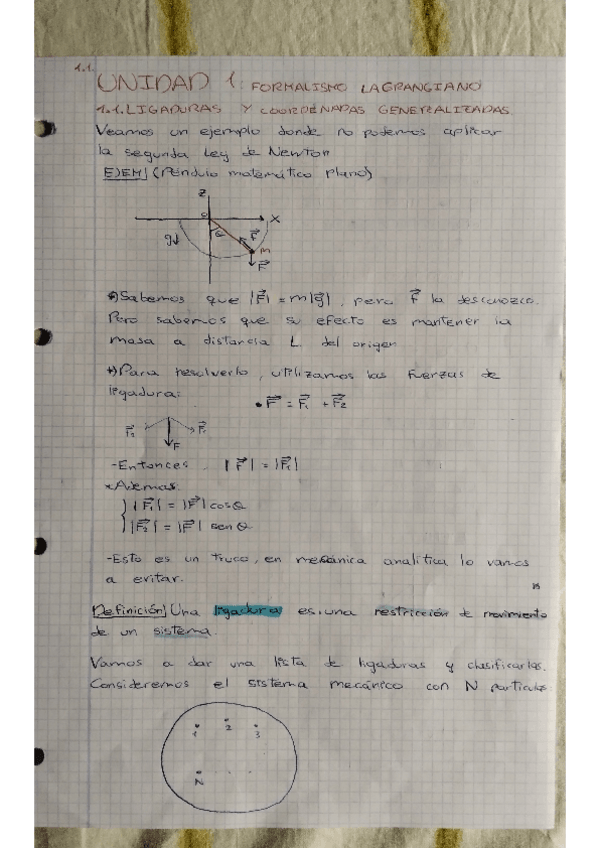 1.1.
UNIDAD 1: FORMALISMO LAGRANGIANO
1.1. LIGADURAS Y COORDENADAS GENERALIZADAS.
Veamos un ejemplo donde no podemos aplicar
la segunda Ley de Newton
EJEM| (Péndulo matemático plano)
Z
O
X
g↓
θ
m
F⃗
Sabemos que |F⃗| = m|g⃗|, pero la desconozco.
Pero sabemos que su efecto es mantener la
masa a distancia L del origen
Para resolverlo, utilizamos las fuerzas de
ligadura:
• F⃗ = F⃗₁ + F⃗₂
F⃗₂ F⃗₁
F
-Entonces, |F⃗₁|
Además
|F⃗₁| = |F⃗| cosθ
|F⃗₂| = |F⃗| senθ
-Esto es un truco, en mecánica analítica lo vamos
a evitar.
Definición| Una ligadura es una restricción de movimiento
de un sistema.
Vamos a dar una lista de ligaduras y clasificarlas.
Consideremos el sistema mecánico con N partículas:
1 2 3
N